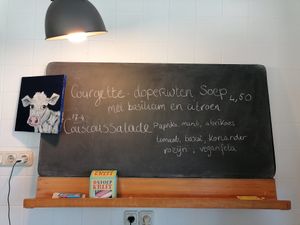 Courgette - doperwten Soep 4,50
met basilicum en citroen
17.4
Couscous Salade Paprika, munt, abrikoos
tomaat, basil, koriander
rozijn, veganfeta